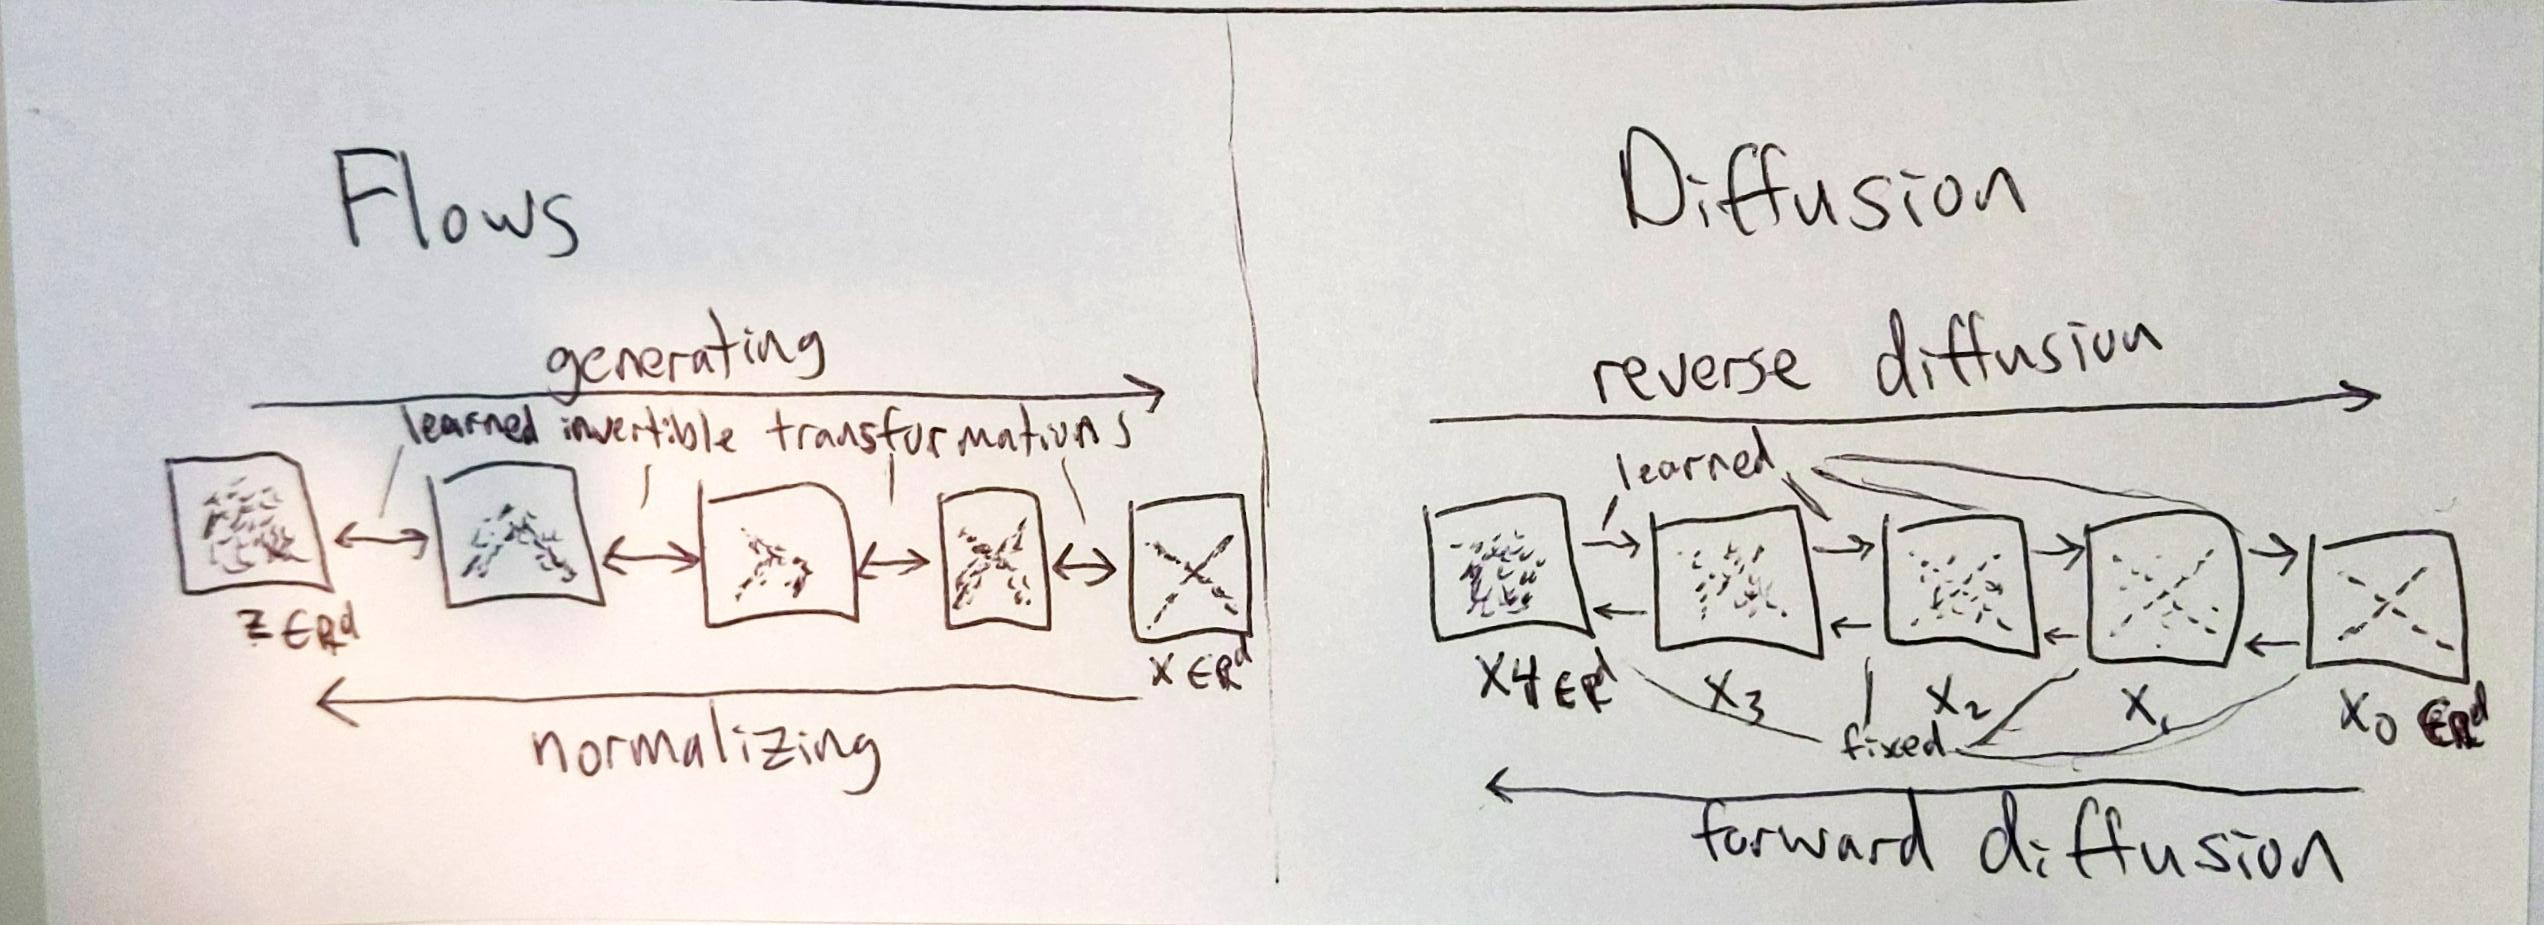 Flows
generating
learned invertible transformations
z ∈ Rᵈ
x ∈ Rᵈ
normalizing
Diffusion
reverse diffusion
learned
X4 ∈ Rᵈ
X₃
X₂
X₁
X₀ ∈ Rᵈ
fixed
forward diffusion